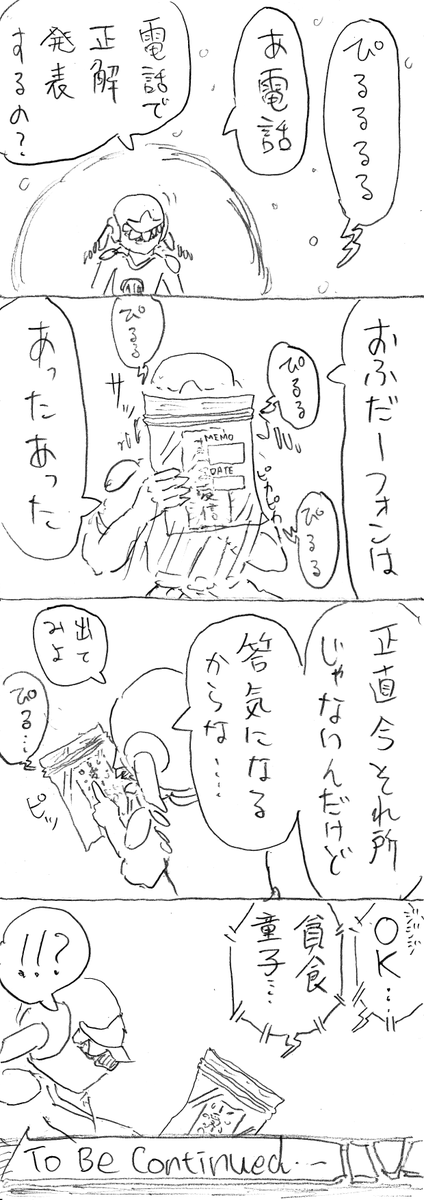 ぴるるるる
あ電話
電話で
正解
発表
するの？
おふだーフォンは
ぴるる
ぴるる
サッ
MEMO
DATE
受信
ピカピカ
ぴるる
あったあった
正直今それ所
じゃないんだけど
答気になる
からな……
出て
みよ
ぴる…
ピッ
OK…
貧食
童子…
!!?
To Be Continued